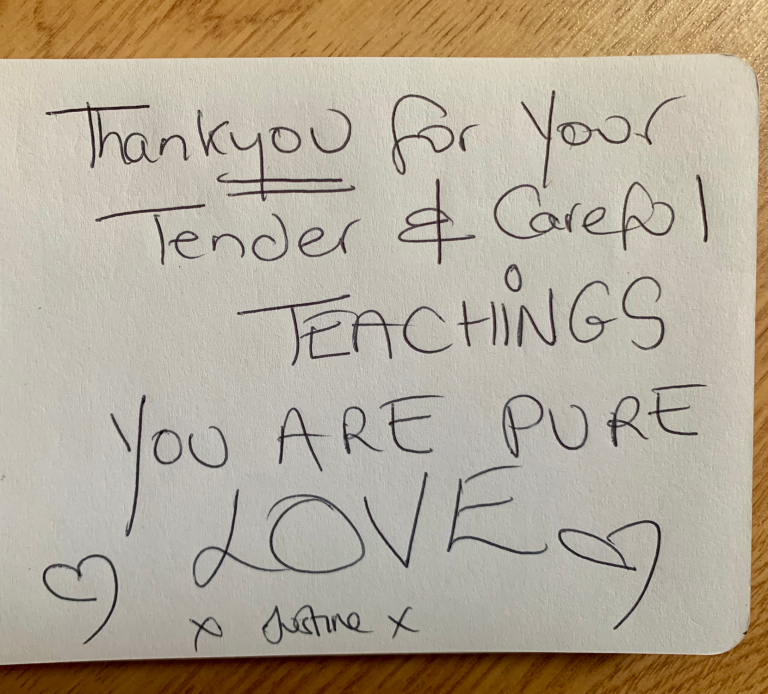 Thankyou for your
Tender & Careful
TEACHINGS
YOU ARE PURE
LOVE
x Justine x